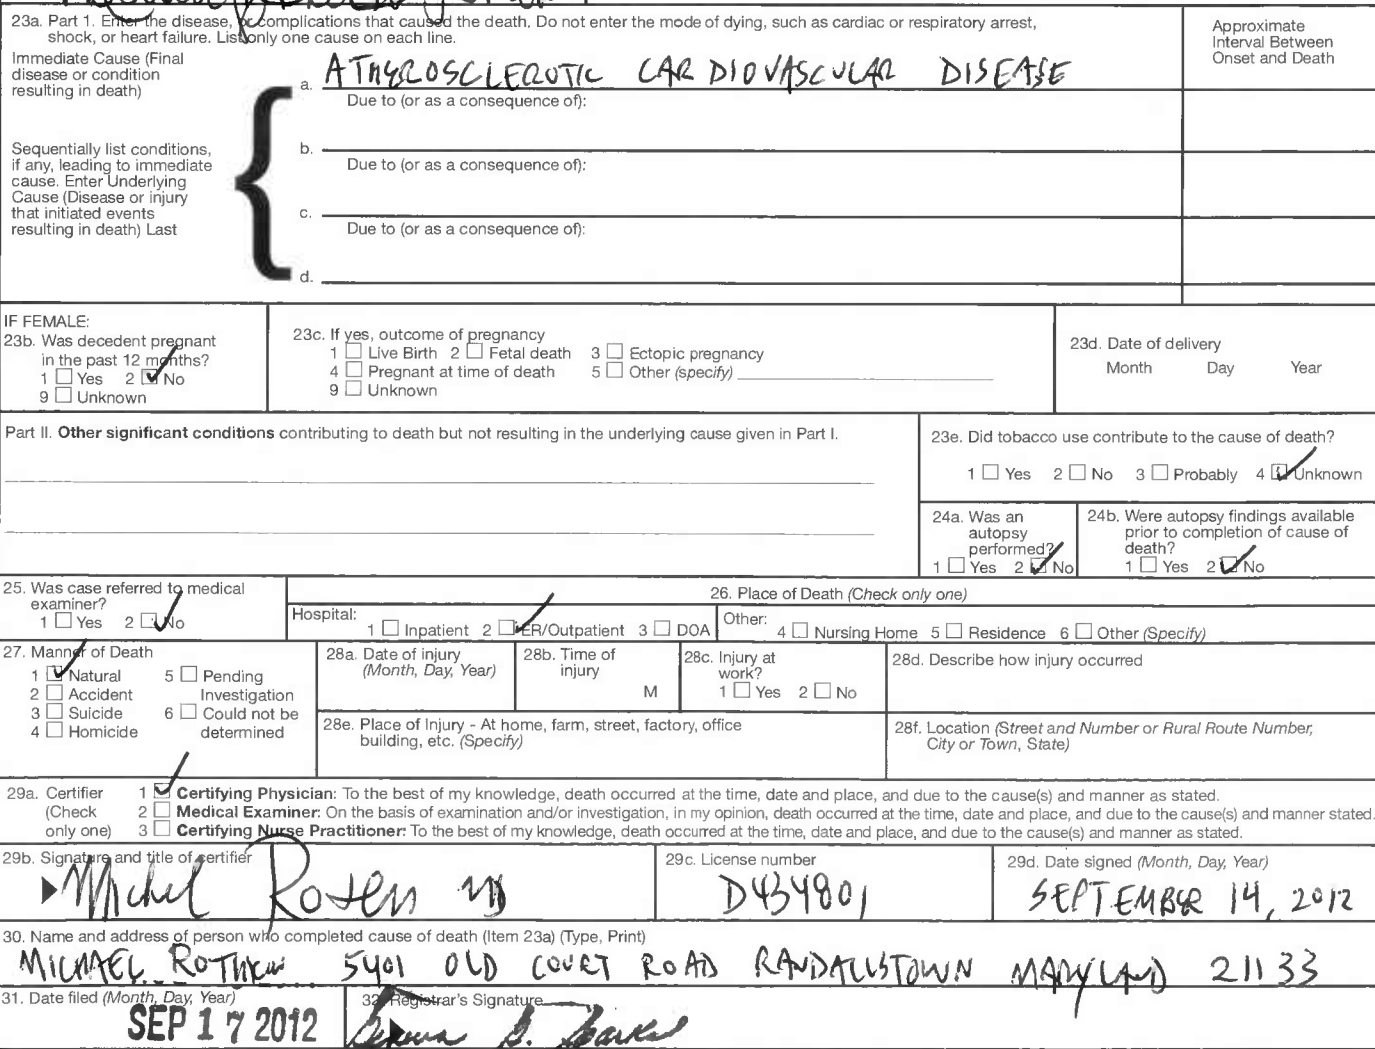 23a. Part 1. Enter the disease, or complications that caused the death. Do not enter the mode of dying, such as cardiac or respiratory arrest,
shock, or heart failure. List only one cause on each line.
Approximate
Interval Between
Onset and Death
Immediate Cause (Final
disease or condition
resulting in death)
a. ATHEROSCLEROTIC CARDIOVASCULAR DISEASE
Due to (or as a consequence of):
Sequentially list conditions,
if any, leading to immediate
cause. Enter Underlying
Cause (Disease or injury
that initiated events
resulting in death) Last
b.
Due to (or as a consequence of):
c.
Due to (or as a consequence of):
d.
IF FEMALE:
23b. Was decedent pregnant
in the past 12 months?
1 ☐ Yes 2 ☑ No
9 ☐ Unknown
23c. If yes, outcome of pregnancy
1 ☐ Live Birth 2 ☐ Fetal death 3 ☐ Ectopic pregnancy
4 ☐ Pregnant at time of death 5 ☐ Other (specify)
9 ☐ Unknown
23d. Date of delivery
Month Day Year
Part II. Other significant conditions contributing to death but not resulting in the underlying cause given in Part I.
23e. Did tobacco use contribute to the cause of death?
1 ☐ Yes 2 ☐ No 3 ☐ Probably 4 ☑ Unknown
24a. Was an
autopsy
performed?
1 ☐ Yes 2 ☑ No
24b. Were autopsy findings available
prior to completion of cause of
death?
1 ☐ Yes 2 ☑ No
25. Was case referred to medical
examiner?
1 ☐ Yes 2 ☑ No
26. Place of Death (Check only one)
Hospital: 1 ☐ Inpatient 2 ☑ ER/Outpatient 3 ☐ DOA
Other: 4 ☐ Nursing Home 5 ☐ Residence 6 ☐ Other (Specify)
27. Manner of Death
1 ☑ Natural 5 ☐ Pending
2 ☐ Accident Investigation
3 ☐ Suicide 6 ☐ Could not be
4 ☐ Homicide determined
28a. Date of injury
(Month, Day, Year)
28b. Time of
injury
M
28c. Injury at
work?
1 ☐ Yes 2 ☐ No
28d. Describe how injury occurred
28e. Place of Injury - At home, farm, street, factory, office
building, etc. (Specify)
28f. Location (Street and Number or Rural Route Number,
City or Town, State)
29a. Certifier
(Check
only one)
1 ☑ Certifying Physician: To the best of my knowledge, death occurred at the time, date and place, and due to the cause(s) and manner as stated.
2 ☐ Medical Examiner: On the basis of examination and/or investigation, in my opinion, death occurred at the time, date and place, and due to the cause(s) and manner stated.
3 ☐ Certifying Nurse Practitioner: To the best of my knowledge, death occurred at the time, date and place, and due to the cause(s) and manner as stated.
29b. Signature and title of certifier
MD
29c. License number
D434801
29d. Date signed (Month, Day, Year)
SEPTEMBER 14, 2012
30. Name and address of person who completed cause of death (Item 23a) (Type, Print)
MICHAEL 5401 OLD COURT ROAD RANDALLSTOWN MARYLAND 21133
31. Date filed (Month, Day, Year)
SEP 17 2012
32. Registrar's Signature